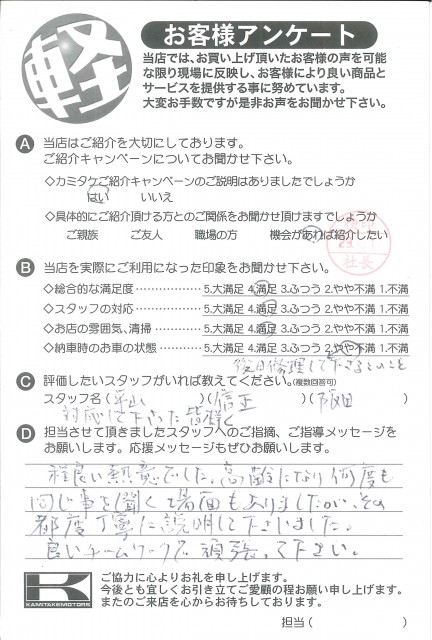 軽
お客様アンケート
当店では、お買い上げ頂いたお客様の声を可能
な限り現場に反映し、お客様により良い商品と
サービスを提供する事に努めています。
大変お手数ですが是非お声をお聞かせ下さい。
A 当店はご紹介を大切にしております。
ご紹介キャンペーンについてお聞かせ下さい。
◇カミタケご紹介キャンペーンのご説明はありましたでしょうか
はい いいえ
◇具体的にご紹介頂ける方とのご関係をお聞かせ頂けますでしょうか
ご親族 ご友人 職場の方 機会があれば紹介したい
社長
B 当店を実際にご利用になった印象をお聞かせ下さい。
◇総合的な満足度 5.大満足 4.満足 3.ふつう 2.やや不満 1.不満
◇スタッフの対応 5.大満足 4.満足 3.ふつう 2.やや不満 1.不満
◇お店の雰囲気、清掃 5.大満足 4.満足 3.ふつう 2.やや不満 1.不満
◇納車時のお車の状態 5.大満足 4.満足 3.ふつう 2.やや不満 1.不満
後日修理して下さるとのこと
C 評価したいスタッフがいれば教えてください。(複数回答可)
スタッフ名( 平山 )( 信正 )( 阪田 )
対応して下さった皆様
D 担当させて頂きましたスタッフへのご指摘、ご指導メッセージを
お願いします。応援メッセージもぜひお願いします。
程良い熱意でした。高齢になり何度も
同じ事を聞く場面もありましたが、その
都度丁寧に説明して下さいました。
良いチームワークで頑張って下さい。
K
KAMITAKEMOTORS
ご協力に心よりお礼を申し上げます。
今後とも宜しくお引き立てご愛顧の程お願い申し上げます。
またのご来店を心からお待ちしております。
担当( )